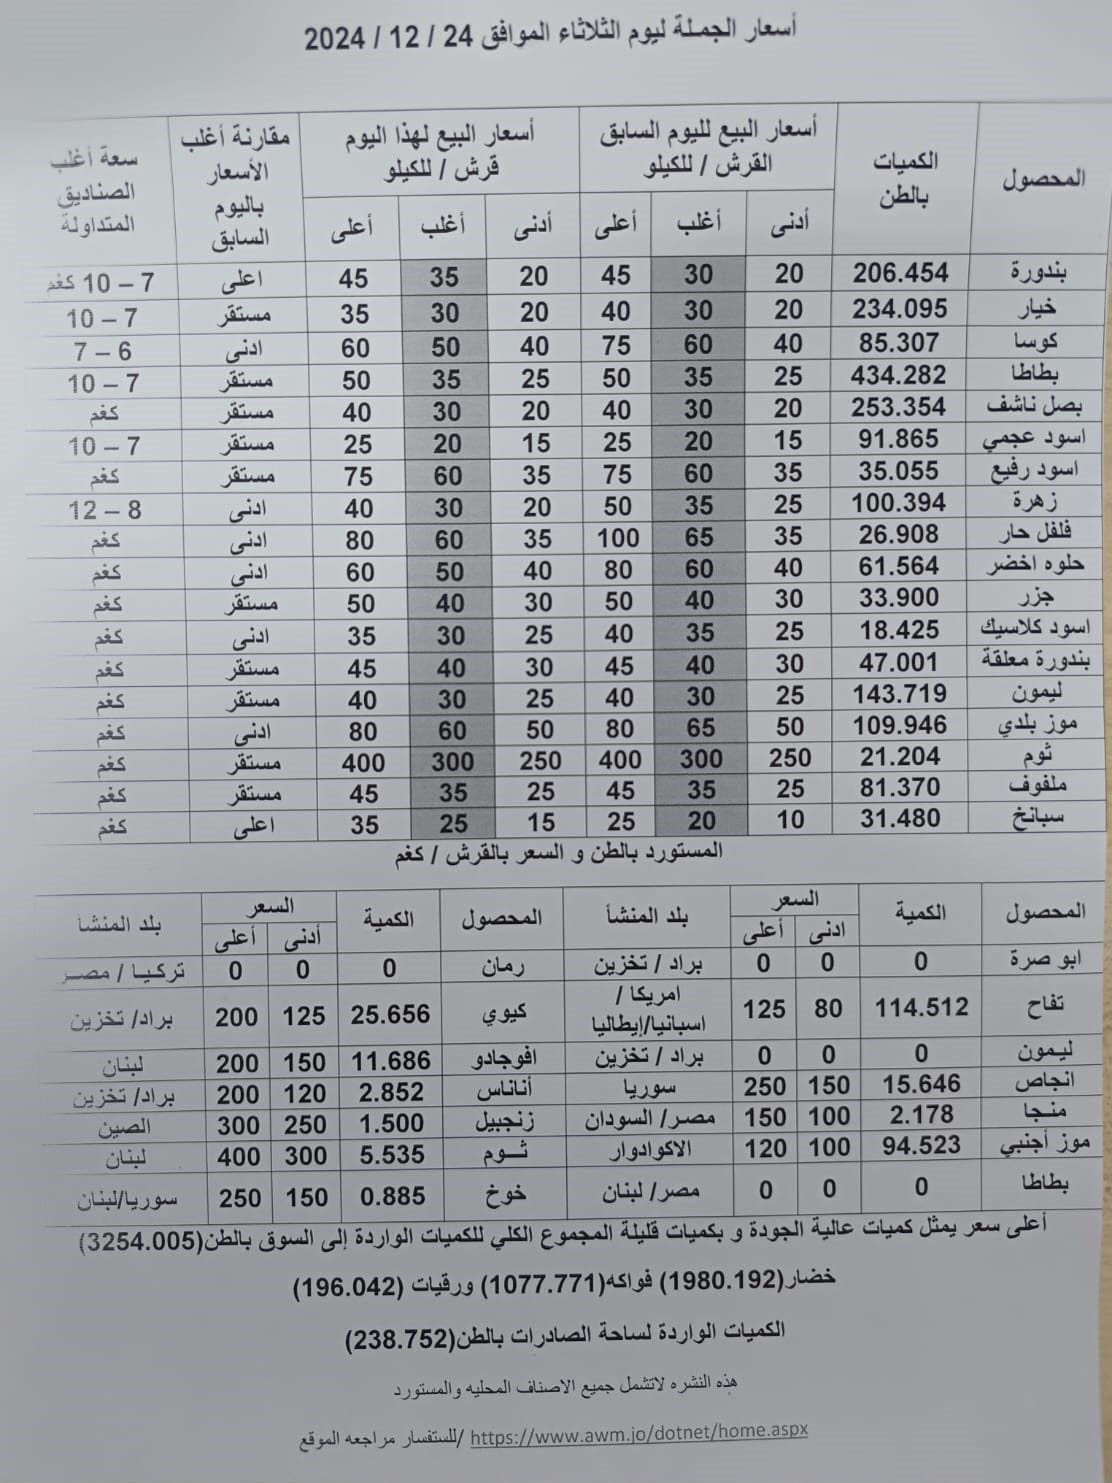 أسعار الجملة ليوم الثلاثاء الموافق 24 / 12 / 2024
المحصول | الكميات بالطن | أسعار البيع لليوم السابق القرش / للكيلو | أسعار البيع لهذا اليوم قرش / للكيلو | مقارنة أغلب الأسعار باليوم السابق | سعة أغلب الصناديق المتداولة
أدنى | أغلب | أعلى | أدنى | أغلب | أعلى
بندورة | 206.454 | 20 | 30 | 45 | 20 | 35 | 45 | اعلى | 7 – 10 كغم
خيار | 234.095 | 20 | 30 | 40 | 20 | 30 | 35 | مستقر | 7 – 10
كوسا | 85.307 | 40 | 60 | 75 | 40 | 50 | 60 | ادنى | 6 – 7
بطاطا | 434.282 | 25 | 35 | 50 | 25 | 35 | 50 | مستقر | 7 – 10
بصل ناشف | 253.354 | 20 | 30 | 40 | 20 | 30 | 40 | مستقر | كغم
اسود عجمي | 91.865 | 15 | 20 | 25 | 15 | 20 | 25 | مستقر | 7 – 10
اسود رفيع | 35.055 | 35 | 60 | 75 | 35 | 60 | 75 | مستقر | كغم
زهرة | 100.394 | 25 | 35 | 50 | 20 | 30 | 40 | ادنى | 8 – 12
فلفل حار | 26.908 | 35 | 65 | 100 | 35 | 60 | 80 | ادنى | كغم
حلوه اخضر | 61.564 | 40 | 60 | 80 | 40 | 50 | 60 | ادنى | كغم
جزر | 33.900 | 30 | 40 | 50 | 30 | 40 | 50 | مستقر | كغم
اسود كلاسيك | 18.425 | 25 | 35 | 40 | 25 | 30 | 35 | ادنى | كغم
بندورة معلقة | 47.001 | 30 | 40 | 45 | 30 | 40 | 45 | مستقر | كغم
ليمون | 143.719 | 25 | 30 | 40 | 25 | 30 | 40 | مستقر | كغم
موز بلدي | 109.946 | 50 | 65 | 80 | 50 | 60 | 80 | ادنى | كغم
ثوم | 21.204 | 250 | 300 | 400 | 250 | 300 | 400 | مستقر | كغم
ملفوف | 81.370 | 25 | 35 | 45 | 25 | 35 | 45 | مستقر | كغم
سبانخ | 31.480 | 10 | 20 | 25 | 15 | 25 | 35 | اعلى | كغم
المستورد بالطن و السعر بالقرش / كغم
المحصول | الكمية | السعر | بلد المنشأ | المحصول | الكمية | السعر | بلد المنشأ
ادنى | أعلى | أدنى | أعلى
ابو صرة | 0 | 0 | 0 | براد / تخزين | رمان | 0 | 0 | 0 | تركيا / مصر
تفاح | 114.512 | 80 | 125 | امريكا / اسبانيا/إيطاليا | كيوي | 25.656 | 125 | 200 | براد/ تخزين
ليمون | 0 | 0 | 0 | براد / تخزين | افوجادو | 11.686 | 150 | 200 | لبنان
انجاص | 15.646 | 150 | 250 | سوريا | أناناس | 2.852 | 120 | 200 | براد/ تخزين
منجا | 2.178 | 100 | 150 | مصر/ السودان | زنجبيل | 1.500 | 250 | 300 | الصين
موز أجنبي | 94.523 | 100 | 120 | الاكوادوار | ثوم | 5.535 | 300 | 400 | لبنان
بطاطا | 0 | 0 | 0 | مصر/ لبنان | خوخ | 0.885 | 150 | 250 | سوريا/لبنان
أعلى سعر يمثل كميات عالية الجودة و بكميات قليلة المجموع الكلي للكميات الواردة إلى السوق بالطن(3254.005)
خضار(1980.192) فواكه(1077.771) ورقيات (196.042)
الكميات الواردة لساحة الصادرات بالطن(238.752)
هذه النشره لاتشمل جميع الاصناف المحليه والمستورد
للستفسار مراجعه الموقع/ https://www.awm.jo/dotnet/home.aspx